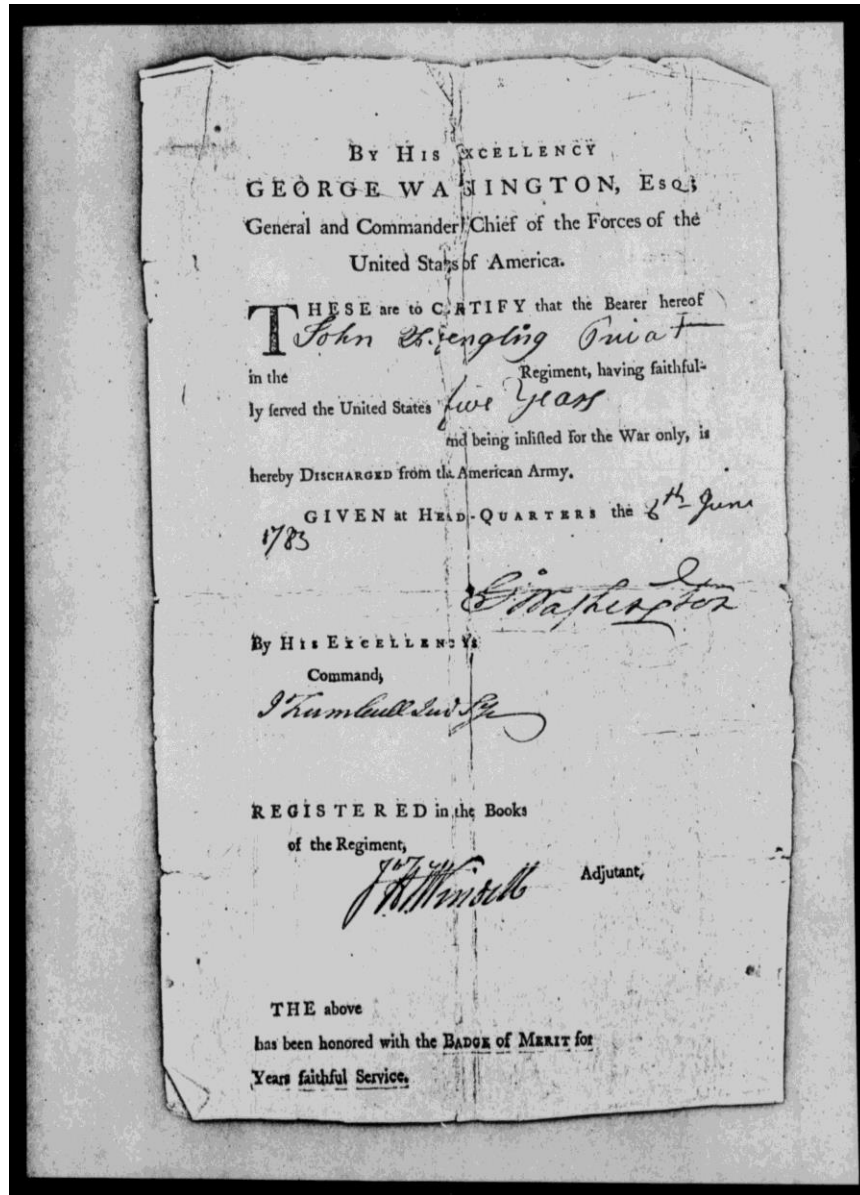 BY HIS EXCELLENCY
GEORGE WASHINGTON, ESQ;
General and Commander Chief of the Forces of the
United States of America.
THESE are to CERTIFY that the Bearer hereof
John
in the Regiment, having faithful-
ly served the United States five Years
and being inlisted for the War only, is
hereby DISCHARGED from the American Army.
GIVEN at HEAD-QUARTERS the 6th June
1783
G Washington
By HIS EXCELLENCY's
Command,
J Trumbull Jun Sy
REGISTERED in the Books
of the Regiment,
Adjutant,
THE above
has been honored with the BADGE of MERIT for
Years faithful Service.